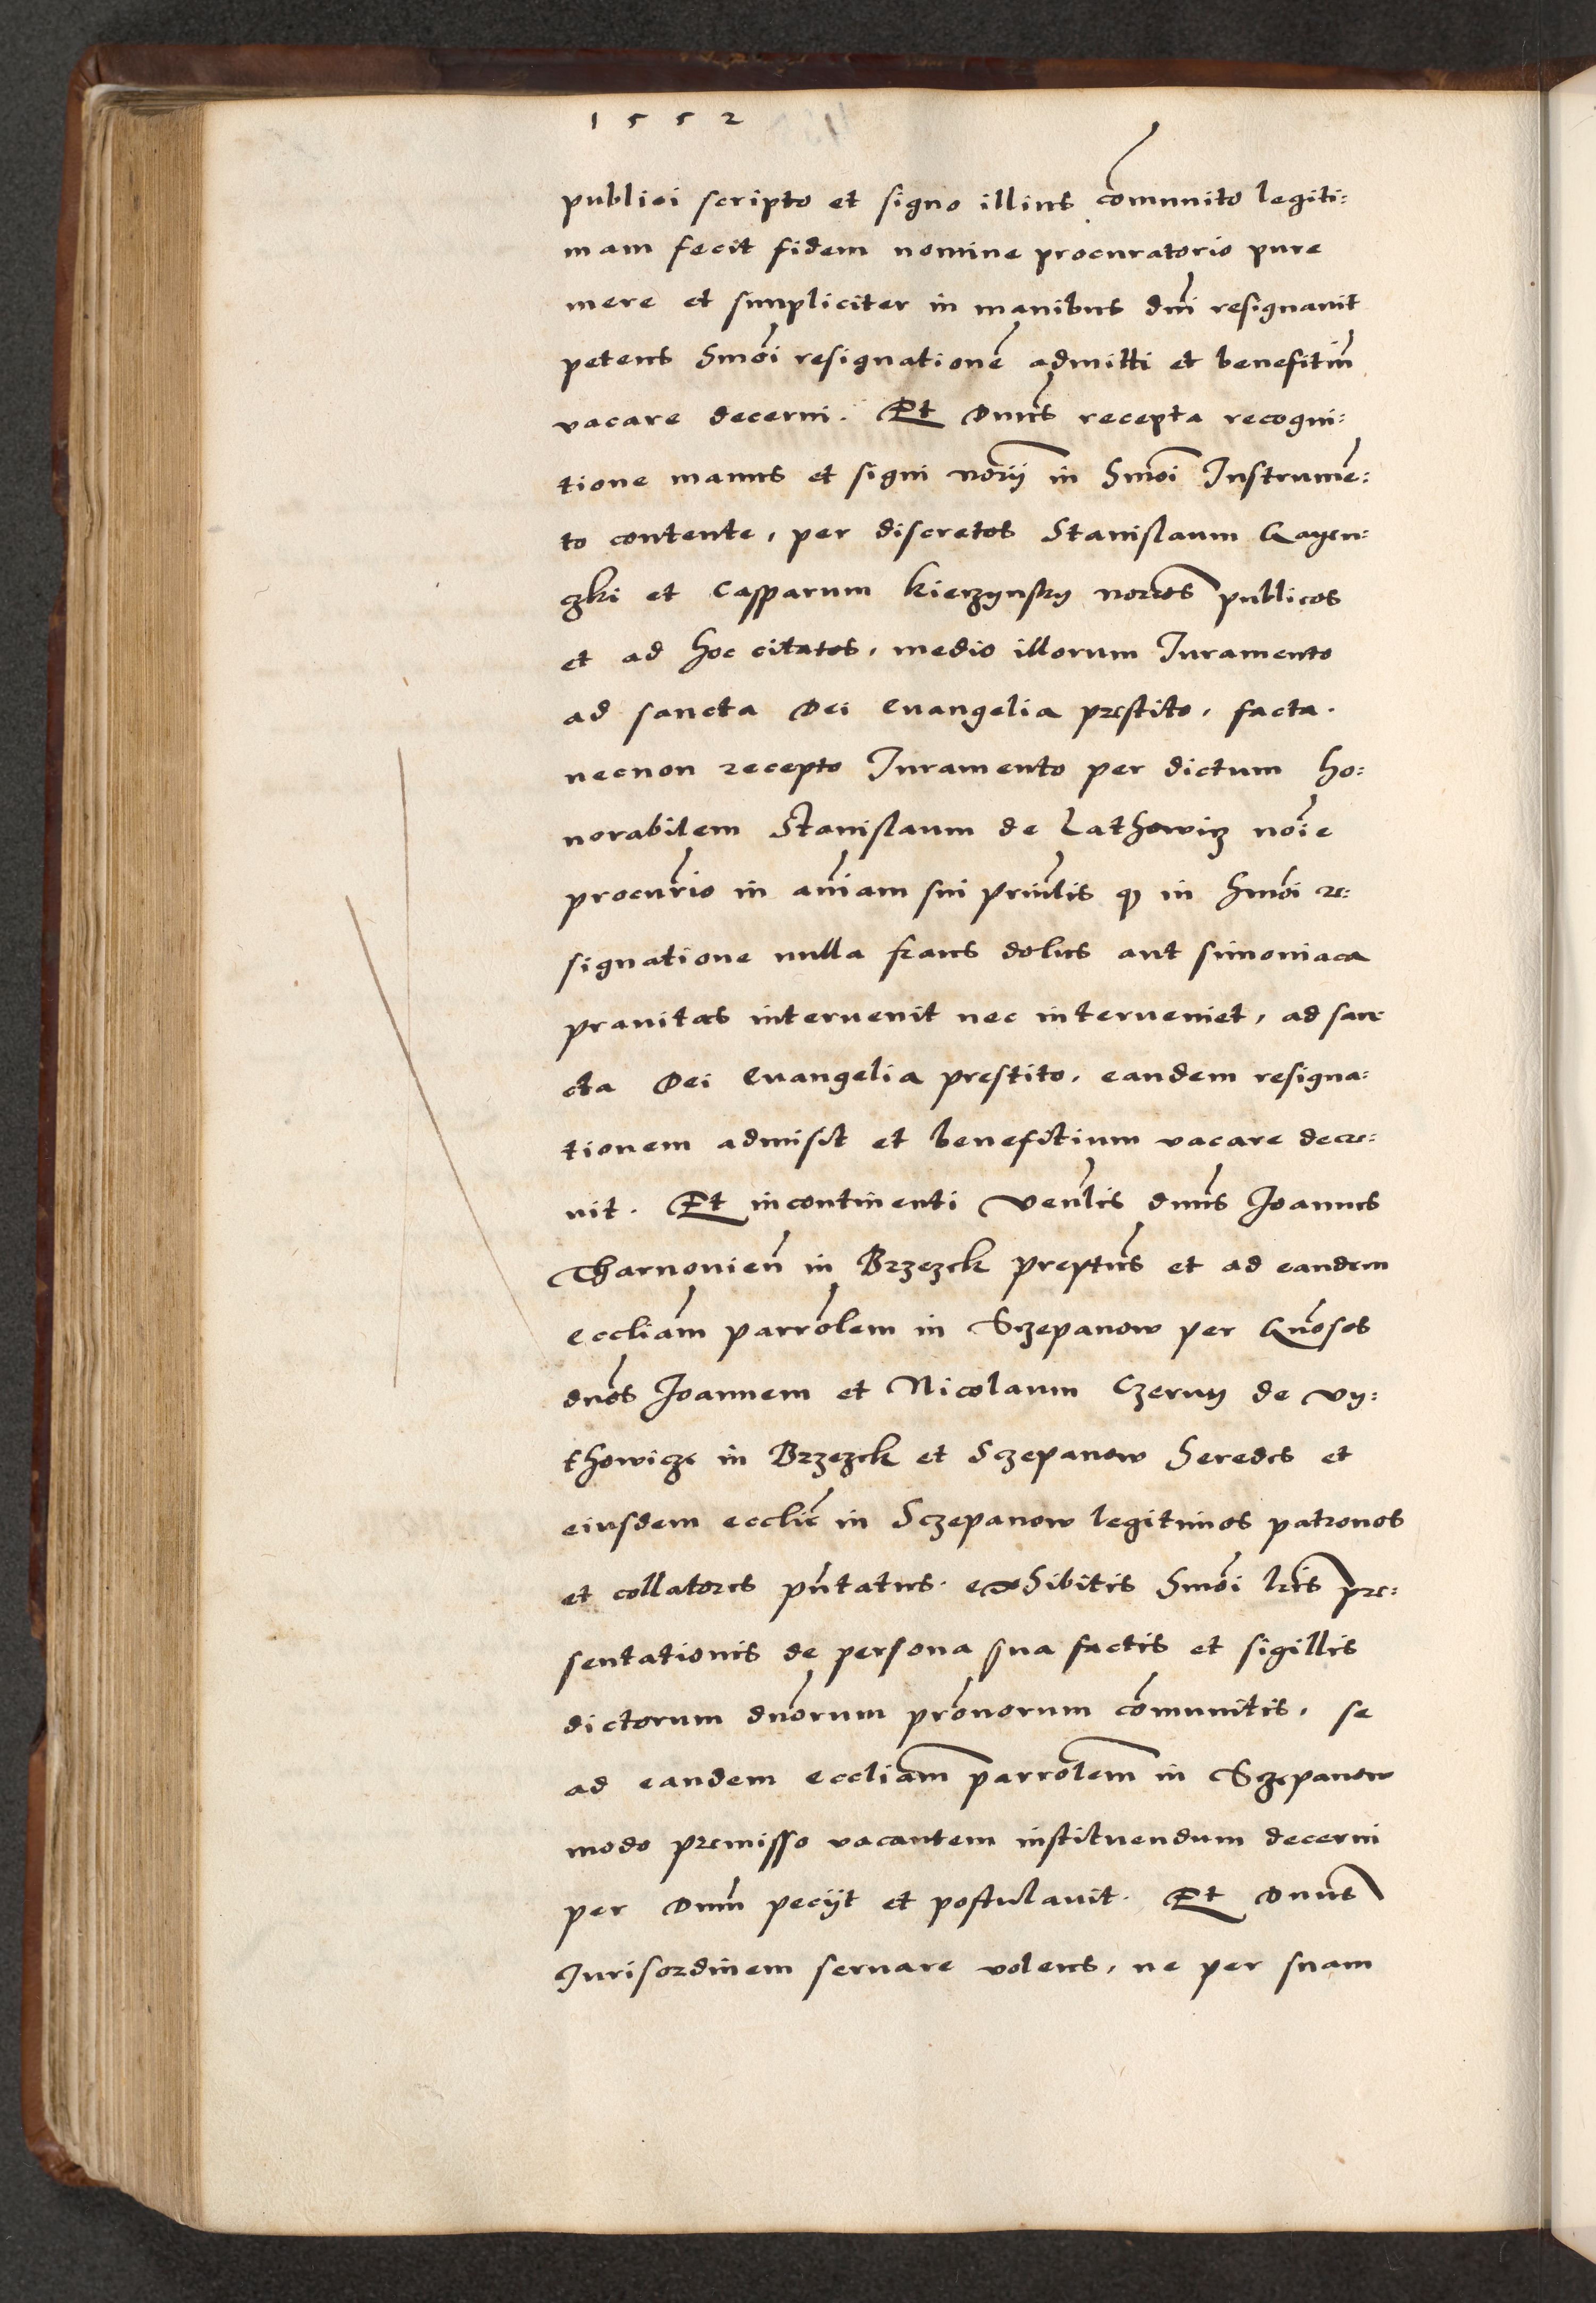 1552
publici scripto et signo illius com̄unito legiti:
mam fecit fidem nomine procuratorio pure
mere et simpliciter in manibus dn̄i resignavit
petens hmōi resignationē admitti et benefitiū
vacare decerni. Et Dnūs recepta recogni:
tione manus et signi nōrij in hmōi Instrumē:
to contente, per discretos Stanislaum Gagen:
czki et Casparum Kierzynsky nor̄ios publicos
et ad hoc citatos, medio illorum Iuramento
ad sancta Dei Evangelia prestito, facta.
necnon recepto Iuramento per dictum ho:
norabilem Stanislaum de Lathowicz nōie
procur̄io in anīam sui prin̄lis ꝙ in hmōi re:
signatione nulla fraus dolus aut simoniaca
pravitas intervenit nec interveniet, ad san:
cta Dei Evangelia prestito, eandem resigna:
tionem admisit et benefitium vacare decre:
vit. Et incontinenti Ven̄lis dnūs Joannes
Tharnovień in Brzezek prep̄tus et ad eandem
eccliām parrōlem in Sczepanow per Gn̄osos
dn̄os Joannem et Nicolaum Czerny de Vy:
thowicze in Brzezek et Sczepanow heredes et
eiusdem ecclīe in Sczepanow legitimos patronos
et collatores pn̄tatus. exhibitis hmōi lrīs pre:
sentationis de persona sua factis et sigillis
dictorum dn̄orum pr̄onorum com̄unitis, se
ad eandem eccliām parrōlem in Sczepanow
modo premisso vacantem instituendum decerni
per Dnūm pecijt et postulavit. Et Dnūs
Jurisordinem servare volens, ne per suam